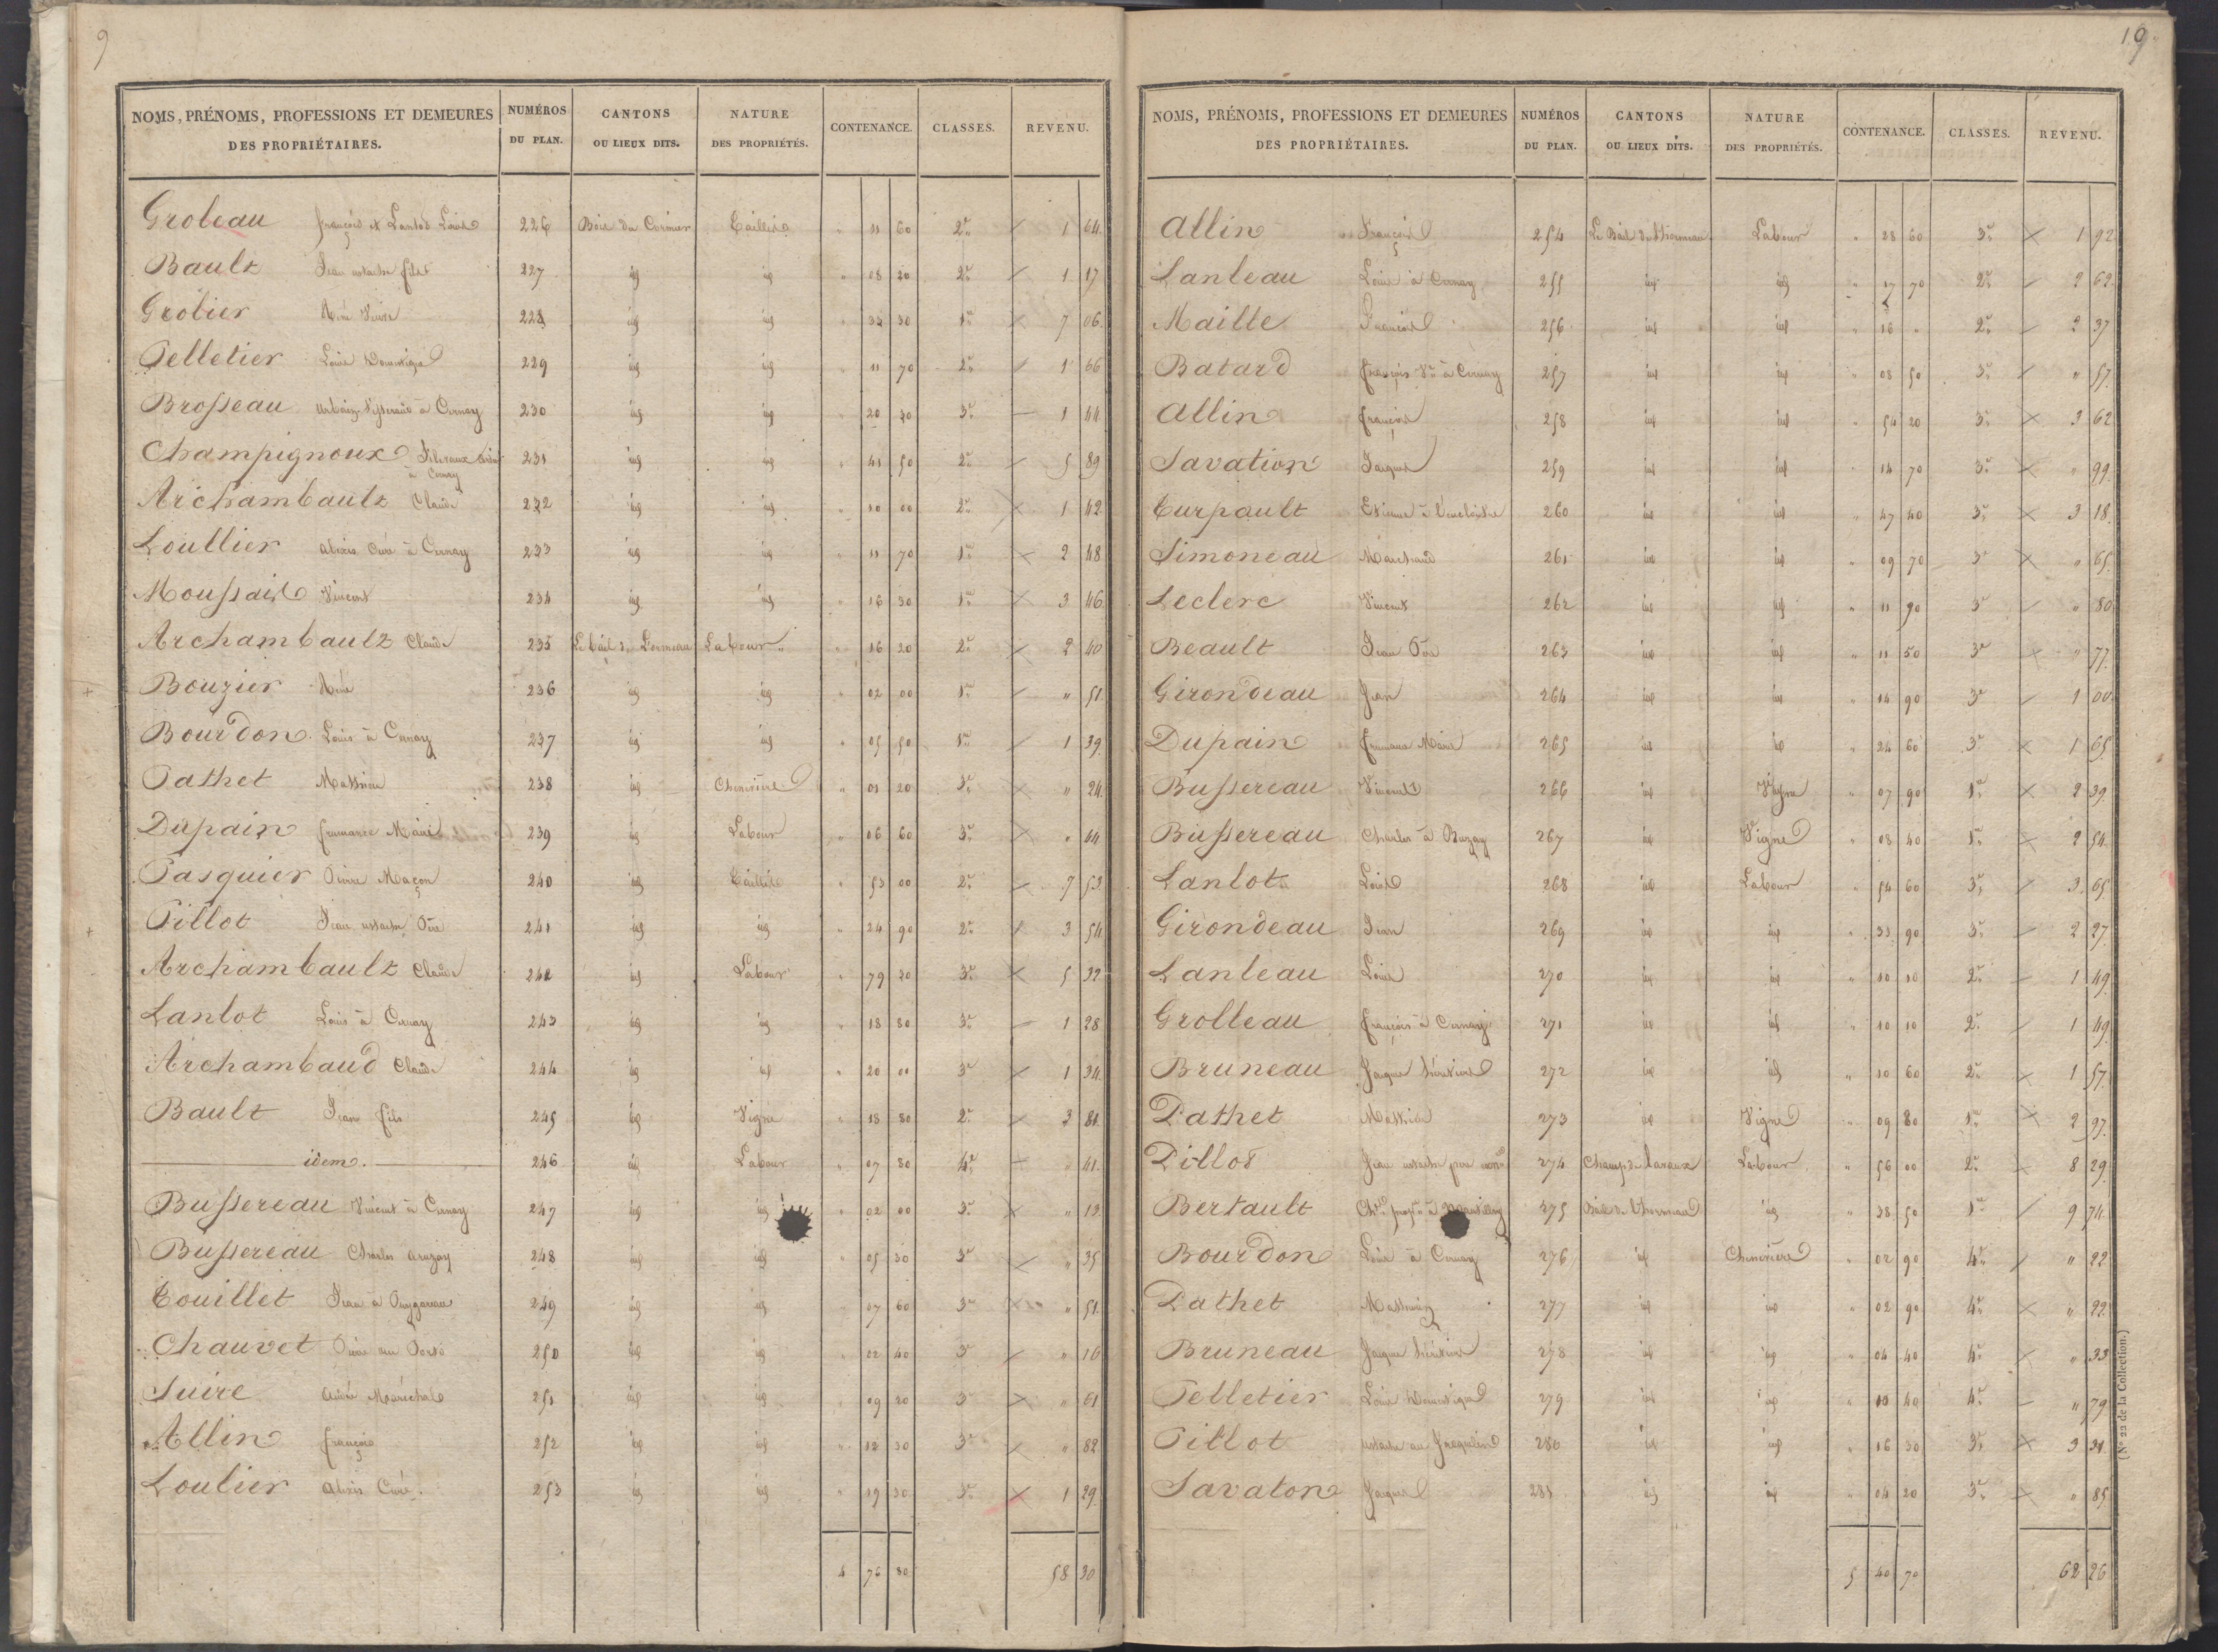 9
NOMS, PRÉNOMS, PROFESSIONS ET DEMEURES DES PROPRIÉTAIRES. NUMÉROS DU PLAN. CANTONS OU LIEUX DITS. NATURE DES PROPRIÉTÉS. CONTENANCE. CLASSES. REVENU.
Groleau françois et Lanlot Louis 226 Bois du Cormier Taillis " 11 60 2e 1 64
Bault Jean fils 227 id id " 08 20 2e 1 17
Grolier René Veuve 228 id id " 30 1re 7 06
Pelletier Louis Domestique 229 id id " 11 70 2e 1 66
Brosseau urbain Tisserand à Cernay 230 id id " 20 30 3e 1 44
Champignoux à Cernay 231 id id " 41 50 2e 5 89
Archambault Claude 232 id id " 10 00 2e 1 42
Loullier alexis Curé à Cernay 233 id id " 11 70 1re 2 48
Moussail Vincent 234 id id " 16 30 1re 3 46
Archambault Claude 235 Labour " 16 20 2e 2 40
Bouzier René 236 id id " 02 00 1re " 51
Bourdon Louis à Cernay 237 id id " 05 50 1re 1 39
Pathet Mathieu 238 id Chenevière " 01 20 3e " 24
Dupain frumance Marie 239 id Labour " 06 60 3e " 44
Pasquier Pierre Maçon 240 id Taillis " 53 00 2e 7 53
Pillot Jean Père 241 id id " 24 90 2e 3 54
Archambault Claude 242 id Labour " 79 20 3e 5 32
Lanlot Louis à Cernay 243 id id " 18 80 3e 1 28
Archambaud Claude 244 id id " 20 00 3e 1 34
Bault Jean fils 245 id Vigne " 18 80 2e 3 81
idem. 246 id Labour " 07 80 4e " 41
Bussereau Vincent à Cernay 247 id id " 02 00 3e " 13
Bussereau Charles 248 id id " 05 30 3e " 35
Touillet Jean à 249 id id " 07 60 3e " 51
Chauvet Pierre 250 id id " 02 40 3e " 16
Suire André Maréchal 251 id id " 09 20 3e " 61
Allin françois 252 id id " 12 30 3e " 82
Loulier alexis Curé. 253 id id " 19 30 3e 1 29
4 76 80 58 30
19
NOMS, PRÉNOMS, PROFESSIONS ET DEMEURES DES PROPRIÉTAIRES. NUMÉROS DU PLAN. CANTONS OU LIEUX DITS. NATURE DES PROPRIÉTÉS. CONTENANCE. CLASSES. REVENU.
Allin François 254 Labour " 28 60 3e 1 92
Lanleau Louis à Cernay 255 id id " 17 70 2e 2 62
Maille François 256 id id " 16 " 2e 2 37
Batard françois à Cernay 257 id id " 08 50 3e " 57
Allin françois 258 id id " 54 20 3e 3 62
Savation Jacques 259 id id " 14 70 3e " 99
Turpault Etienne à 260 id id " 47 40 3e 3 18
Simoneau Marchand 261 id id " 09 70 3e " 65
Leclerc Vincent 262 id id " 11 90 3e " 80
Beault Jean Père 263 id id " 11 50 3e " 77
Girondeau Jean 264 id id " 14 90 3e 1 00
Dupain frumance Marie 265 id id " 24 60 3e 1 65
Bussereau Vincent 266 id Vigne " 07 90 1re 2 39
Bussereau Charles à 267 id Vigne " 08 40 1re 2 54
Lanlot Louis 268 id Labour " 54 60 3e 3 65
Girondeau Jean 269 id id " 33 90 3e 2 27
Lanleau Louis 270 id id " 10 10 2e 1 49
Grolleau françois à Cernay 271 id id " 10 10 2e 1 49
Bruneau Jacques héritiers 272 id id " 10 60 2e 1 57
Pathet Mathieu 273 id Vigne " 09 80 1re 2 97
Pillot Jean 274 Labour " 56 00 2e 8 29
Bertault 275 id " 38 50 1re 9 74
Bourdon Louis à Cernay 276 id Chenevière " 02 90 4e " 22
Pathet Mathieu 277 id id " 02 90 4e " 22
Bruneau Jacques héritiers 278 id id " 04 40 4e " 33
Pelletier Louis Domestique 279 id id " 10 40 4e " 79
Pillot 280 id id " 16 30 3e 3 31
Savaton Jacques 281 id id " 04 20 3e " 85
5 40 70 62 26
(N° 22 de la Collection.)